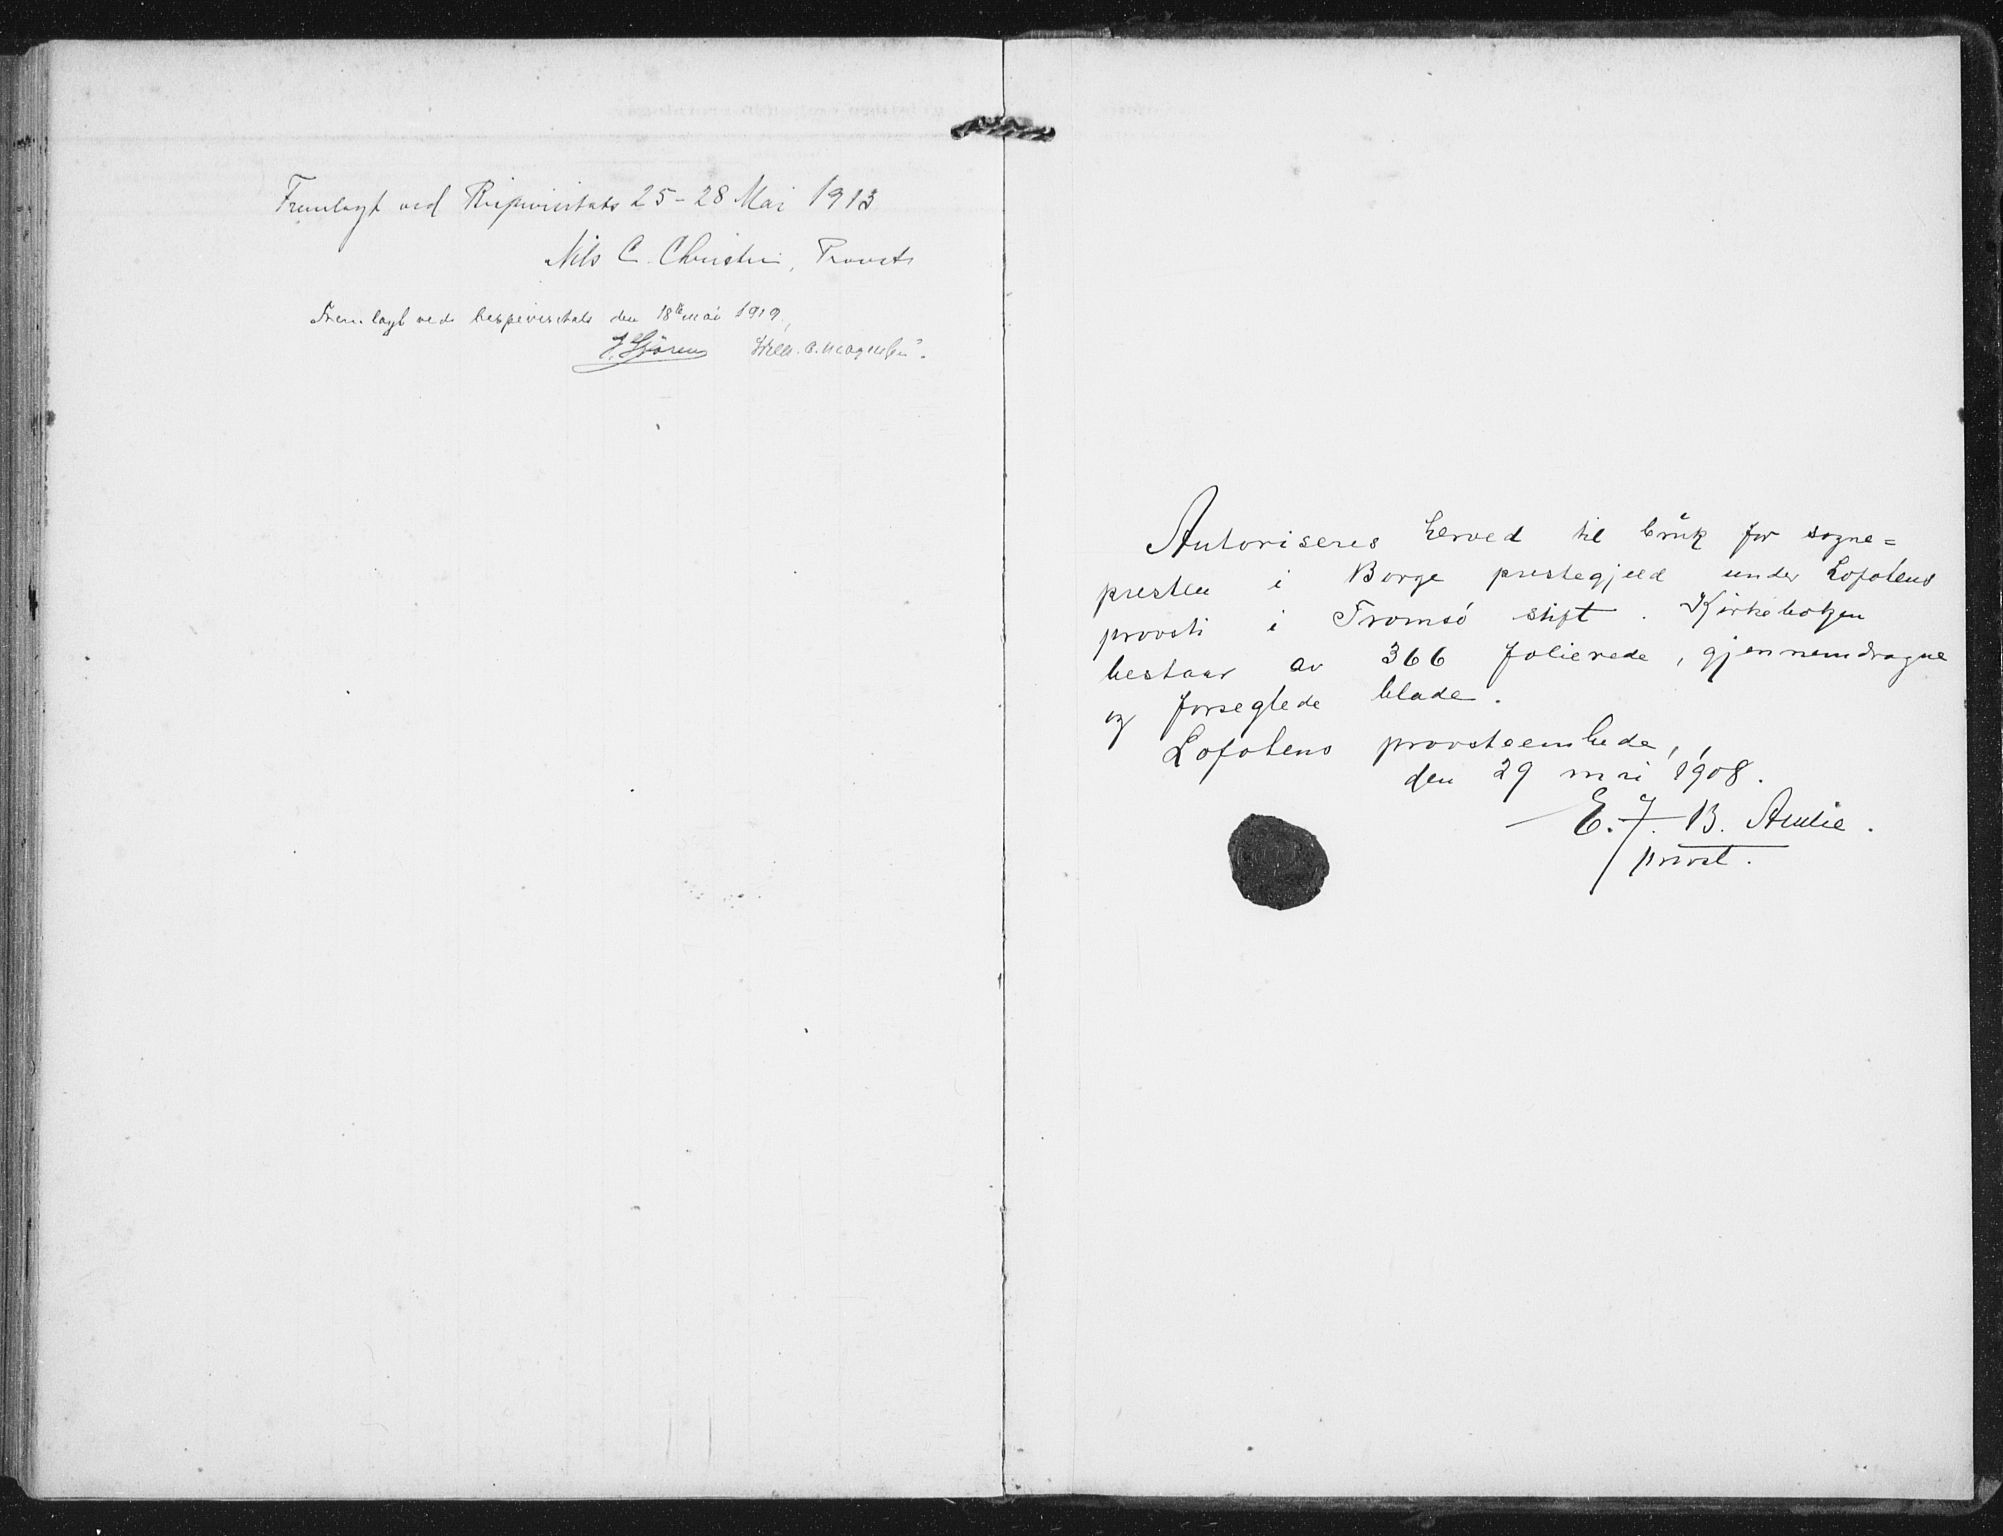 Fremlagt ved Bispevisitats 25-28 Mai 1913
Nils C. Christie, Provst
Fremlagt ved bispevisitats den 18de mai 1919,
Autoriseres herved til brŭk for sogne=
presten i Borge prestegjeld under Lofotens
provsti i Tromsö stift. Kirkeboken
bestaar av 366 folierede, gjennemdragne
og forseglede blade.
Lofotens provsteembede,
den 29 mai 1908.
E. F. B.
provst.